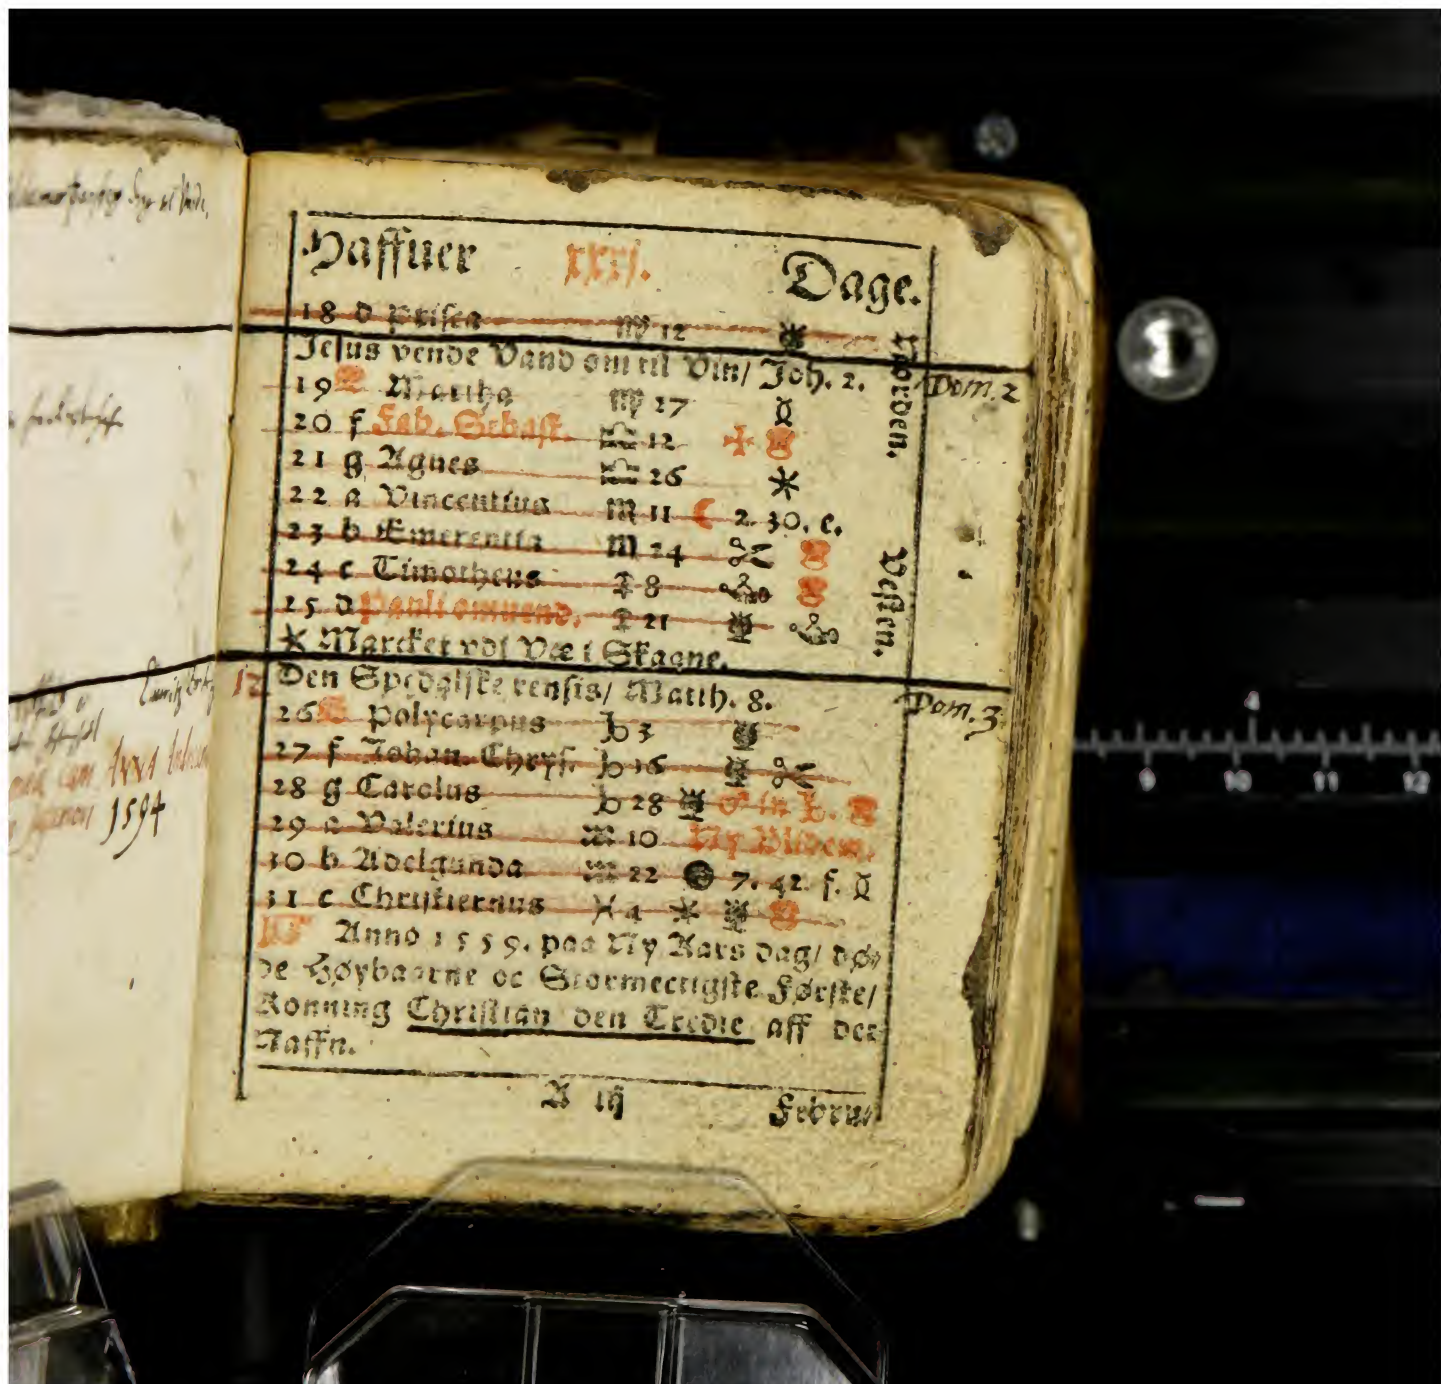 Haffuer xxxj. Dage.
18 d Prisca ♍ 12
Jesus vende Vand om til Vin/ Joh. 2.
Dom. 2
19 Martha ♍ 27 ☿
20 f Fab. Sebast. ♎ 12 ✠
21 g Agnes ♎ 26 ✶
22 a Vincentius ♏ 11 ☾ 2. 30. e.
23 b Emerentia ♏ 24
24 c Timotheus ♐ 8
25 d Pauli omuend. ♐ 21
✶ Marcket vdi Væ i Skagne.
Norden.
Vesten.
12 Den Spedalske rensis/ Matth. 8.
Dom. 3
26 Polycarpus ♑ 3
27 f Johan. Chrys. ♑ 16
28 g Carolus ♑ 28 ♂ in
29 a Valerius ♒ 10 Ny
30 b Adelgunda ♒ 22 7. 42. f. ☿
31 c Christiernus ♓ 4 ✶
Anno 1559. paa Ny Aars dag/ dø-
de Høybaarne oc Stormectigste Første/
Konning Christian den Tredie aff det
Naffn.
A iij Febru-
1594
4
9 10 11 12